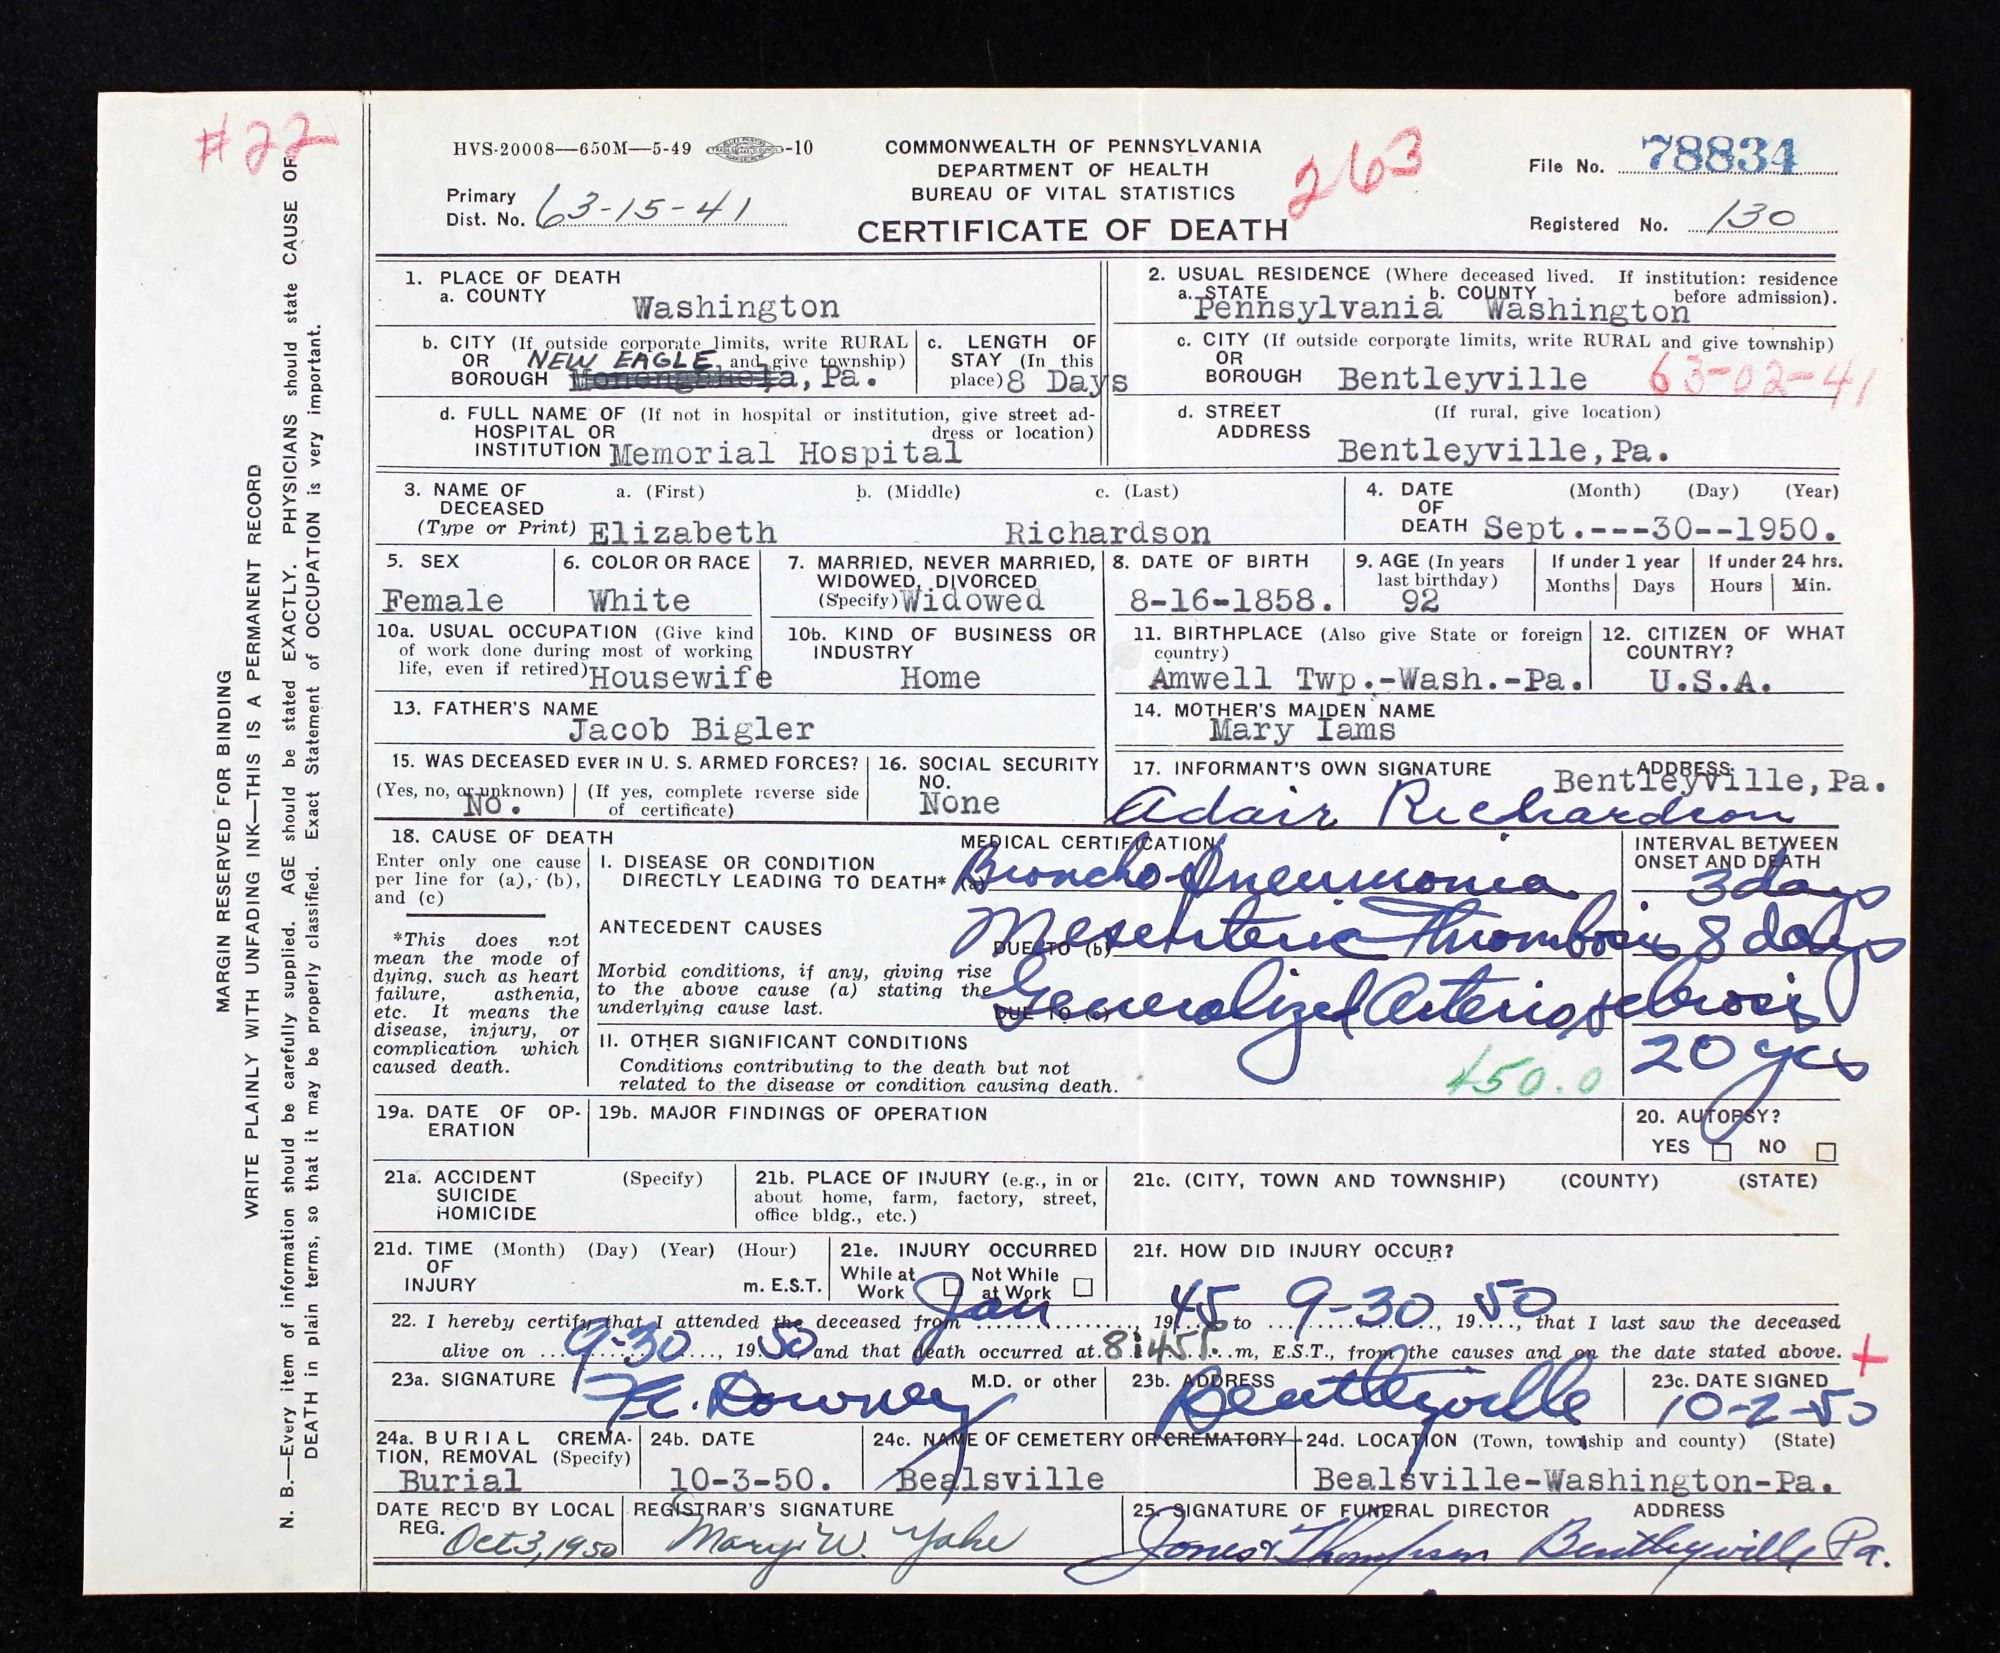 #22
HVS-20008—650M—5-49 -10
COMMONWEALTH OF PENNSYLVANIA
DEPARTMENT OF HEALTH
BUREAU OF VITAL STATISTICS
CERTIFICATE OF DEATH
263
File No. 78834
Primary
Dist. No. 63-15-41
Registered No. 130
1. PLACE OF DEATH
a. COUNTY Washington
2. USUAL RESIDENCE (Where deceased lived. If institution: residence before admission).
a. STATE Pennsylvania b. COUNTY Washington
b. CITY (If outside corporate limits, write RURAL
OR NEW EAGLE and give township)
BOROUGH Monongahela, Pa.
c. LENGTH OF
STAY (In this
place) 8 Days
c. CITY (If outside corporate limits, write RURAL and give township)
OR
BOROUGH Bentleyville 63-02-41
d. FULL NAME OF (If not in hospital or institution, give street ad-
HOSPITAL OR dress or location)
INSTITUTION Memorial Hospital
d. STREET (If rural, give location)
ADDRESS
Bentleyville, Pa.
3. NAME OF a. (First) b. (Middle) c. (Last)
DECEASED
(Type or Print) Elizabeth Richardson
4. DATE (Month) (Day) (Year)
OF
DEATH Sept.---30--1950.
5. SEX
Female
6. COLOR OR RACE
White
7. MARRIED, NEVER MARRIED,
WIDOWED, DIVORCED
(Specify) Widowed
8. DATE OF BIRTH
8-16-1858.
9. AGE (In years
last birthday)
92
If under 1 year
Months Days
If under 24 hrs.
Hours Min.
10a. USUAL OCCUPATION (Give kind
of work done during most of working
life, even if retired) Housewife
10b. KIND OF BUSINESS OR
INDUSTRY
Home
11. BIRTHPLACE (Also give State or foreign
country)
Amwell Twp.-Wash.-Pa.
12. CITIZEN OF WHAT
COUNTRY?
U.S.A.
13. FATHER'S NAME
Jacob Bigler
14. MOTHER'S MAIDEN NAME
Mary Iams
15. WAS DECEASED EVER IN U. S. ARMED FORCES?
(Yes, no, or unknown) (If yes, complete reverse side
No. of certificate)
16. SOCIAL SECURITY
NO.
None
17. INFORMANT'S OWN SIGNATURE ADDRESS
Bentleyville, Pa.
Adair Richardson
18. CAUSE OF DEATH
Enter only one cause
per line for (a), (b),
and (c)
*This does not
mean the mode of
dying, such as heart
failure, asthenia,
etc. It means the
disease, injury, or
complication which
caused death.
MEDICAL CERTIFICATION
I. DISEASE OR CONDITION
DIRECTLY LEADING TO DEATH* (a) Broncho Pneumonia
ANTECEDENT CAUSES
DUE TO (b) Mesenteric Thrombosis
Morbid conditions, if any, giving rise
to the above cause (a) stating the
underlying cause last.
DUE TO (c) Generalized Arteriosclerosis
II. OTHER SIGNIFICANT CONDITIONS
Conditions contributing to the death but not
related to the disease or condition causing death.
450.0
INTERVAL BETWEEN
ONSET AND DEATH
3 days
8 days
20 yrs
19a. DATE OF OP-
ERATION
19b. MAJOR FINDINGS OF OPERATION
20. AUTOPSY?
YES NO
21a. ACCIDENT (Specify)
SUICIDE
HOMICIDE
21b. PLACE OF INJURY (e.g., in or
about home, farm, factory, street,
office bldg., etc.)
21c. (CITY, TOWN AND TOWNSHIP) (COUNTY) (STATE)
21d. TIME (Month) (Day) (Year) (Hour)
OF
INJURY m. E.S.T.
21e. INJURY OCCURRED
While at Not While
Work at Work
21f. HOW DID INJURY OCCUR?
22. I hereby certify that I attended the deceased from Jan, 1945 to 9-30, 1950, that I last saw the deceased
alive on 9-30, 1950 and that death occurred at 8:45 m, E.S.T., from the causes and on the date stated above. +
23a. SIGNATURE M.D. or other
Downey
23b. ADDRESS
Bentleyville
23c. DATE SIGNED
10-2-50
24a. BURIAL CREMA-
TION, REMOVAL (Specify)
Burial
24b. DATE
10-3-50.
24c. NAME OF CEMETERY OR CREMATORY
Bealsville
24d. LOCATION (Town, township and county) (State)
Bealsville-Washington-Pa.
DATE REC'D BY LOCAL
REG. Oct 3, 1950
REGISTRAR'S SIGNATURE
Mary W. Yohe
25. SIGNATURE OF FUNERAL DIRECTOR ADDRESS
Jones & Thompson Bentleyville Pa.
MARGIN RESERVED FOR BINDING
WRITE PLAINLY WITH UNFADING INK—THIS IS A PERMANENT RECORD
N. B.—Every item of information should be carefully supplied. AGE should be stated EXACTLY. PHYSICIANS should state CAUSE OF
DEATH in plain terms, so that it may be properly classified. Exact Statement of OCCUPATION is very important.